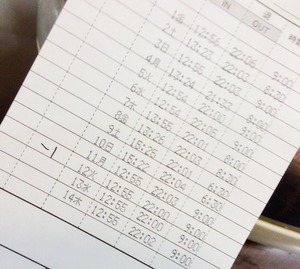 IN 通 OUT 時間
1金 12:56 22:06 9:00
2土 13:23 22:03 8:30
3日 12:55 22:03 9:00
4月 13:24 21:33 8:00
5火 12:54 22:06 9:00
6水 12:55 9:00
7木 13:55 22:02 8:00
8金 13:26 22:01 8:30
9土 15:25 22:03 6:30
10日 15:22 22:04 6:30
11月 12:55 22:03 9:00
12火 12:55 22:00 9:00
13水 12:55 22:00 9:00
14木 12:55 22:02 9:00